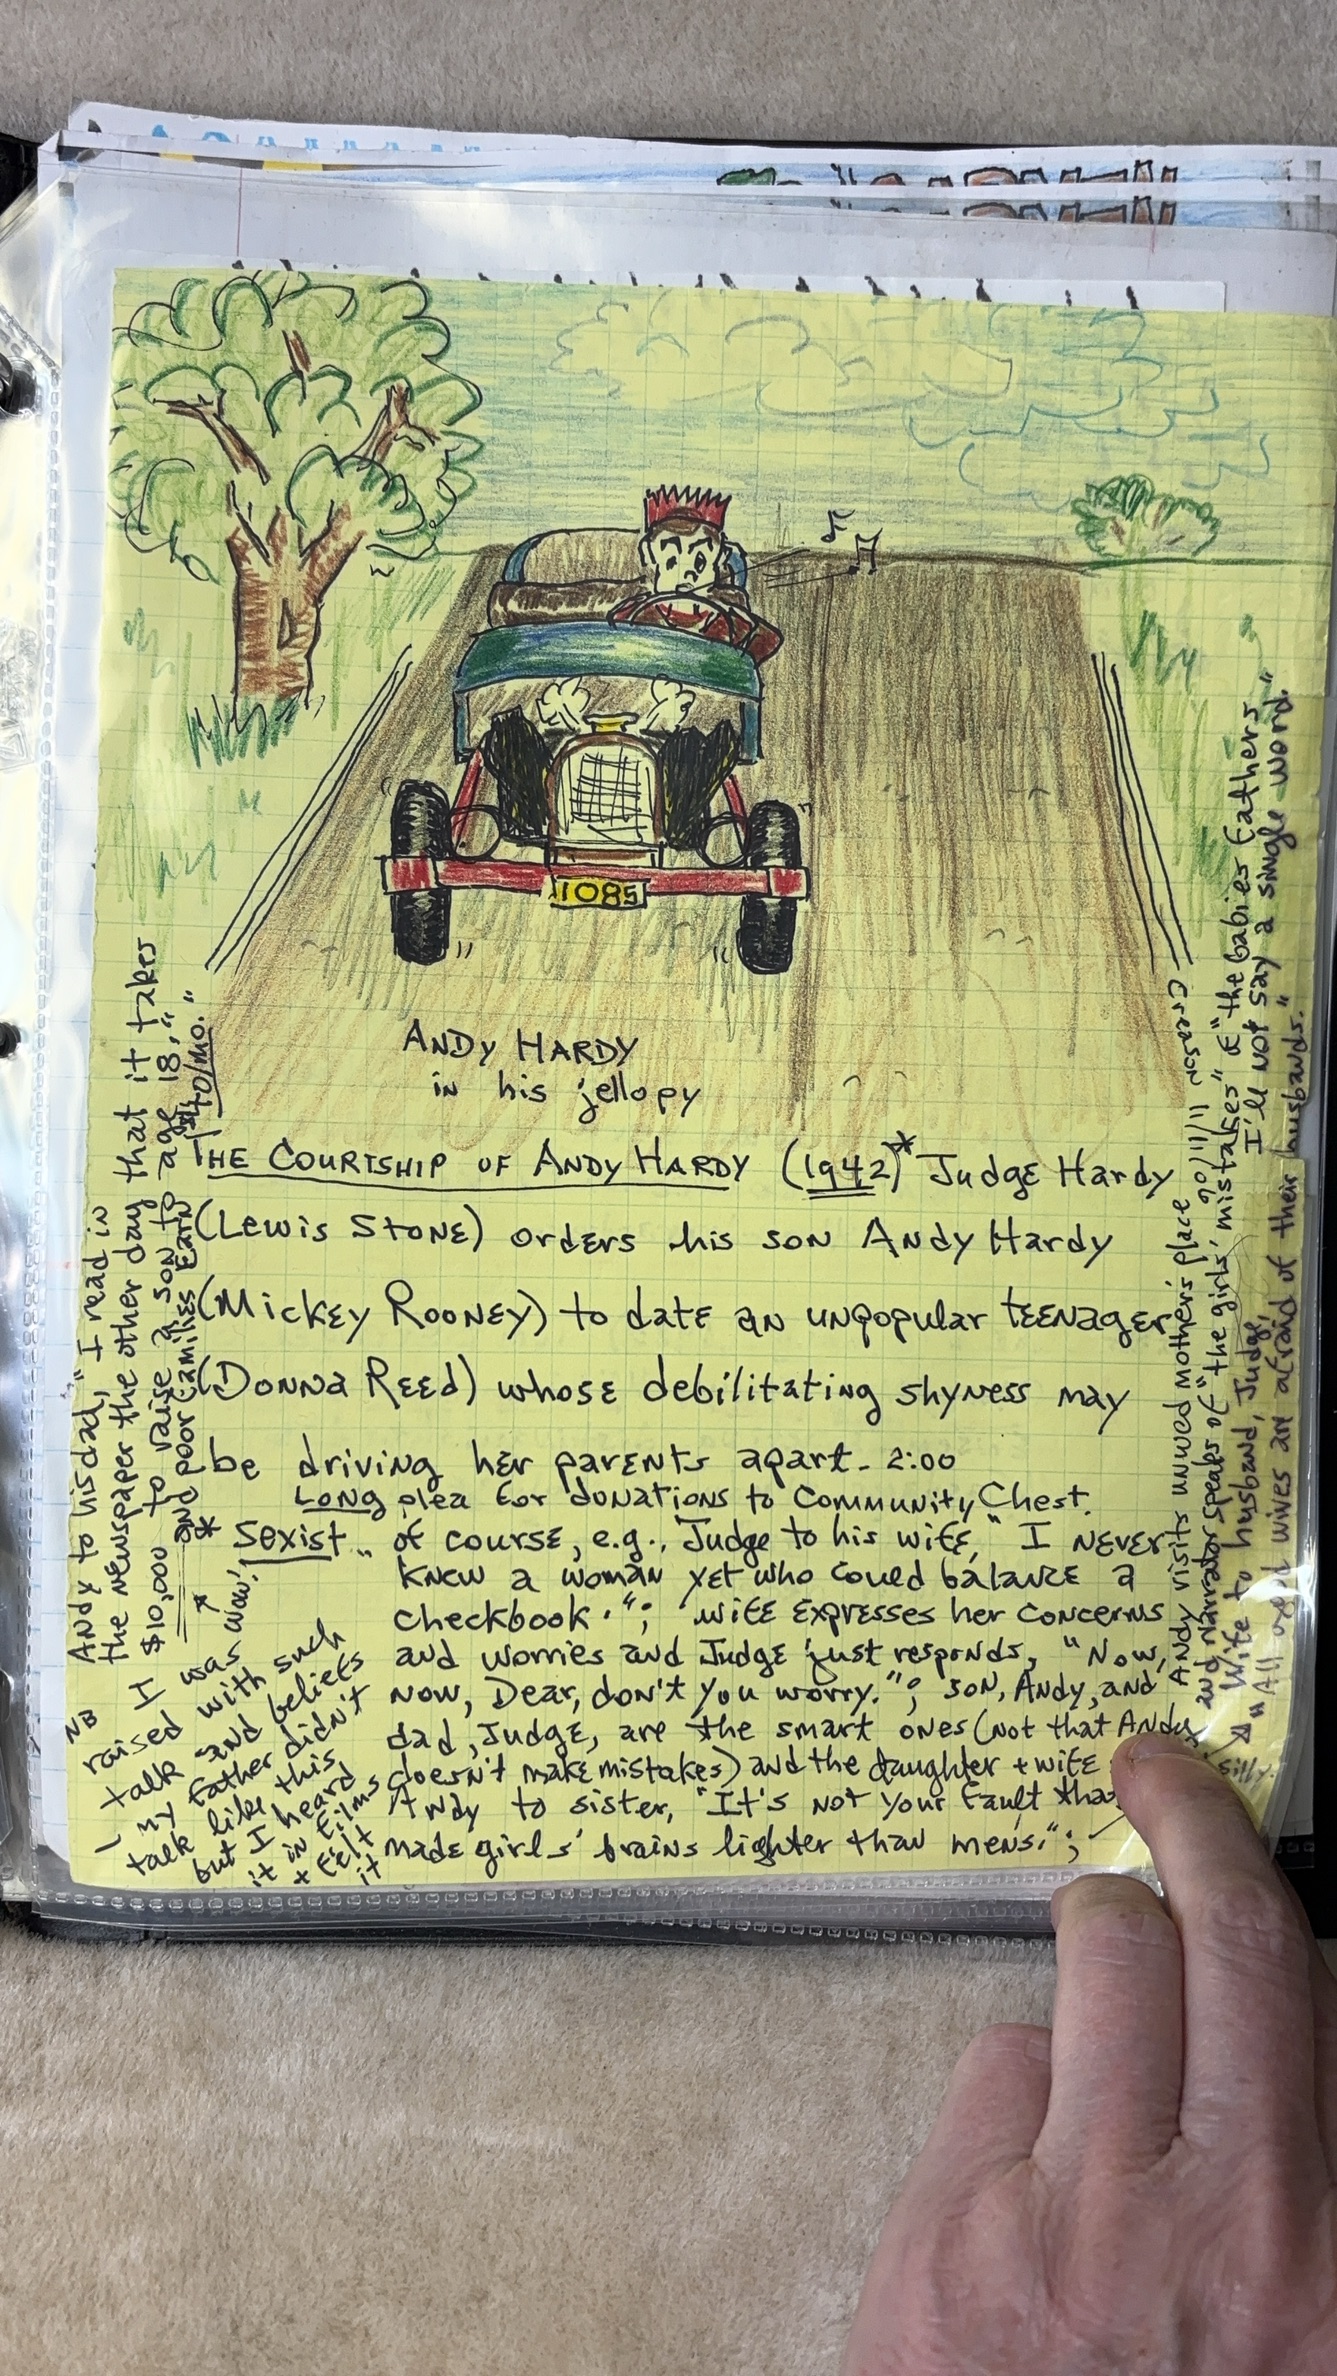 1085
ANDY HARDY
in his jellopy
THE COURTSHIP OF ANDY HARDY (1942)* Judge Hardy
(Lewis Stone) orders his son Andy Hardy
(Mickey Rooney) to date an unpopular teenager
(Donna Reed) whose debilitating shyness may
be driving her parents apart. 2:00
LONG plea for donations to Community Chest.
* Sexist of course, e.g., Judge to his wife, "I never
knew a woman yet who could balance a
checkbook."; wife expresses her concerns
and worries and Judge just responds, "Now,
now, Dear, don't you worry."; son, Andy, and
dad, Judge, are the smart ones (not that Andy
doesn't make mistakes) and the daughter + wife
silly.
Andy to sister, "It's not your fault
made girls' brains lighter than mens.";
Andy to his dad, "I read in
the newspaper the other day that it takes
$10,000 to raise a son to age 18,"
and poor families earn $40/mo."
wow!
NB I was
raised with such
talk and beliefs
– my father didn't
talk like this
but I heard
it in films
+ felt
it
Creeson 11/11/06
Andy visits unwed mothers' place
and narrator speaks of "the girls' mistakes" & "the babies fathers
Wife to husband, Judge, I'll not say a single word."
"All good wives are afraid of their husbands."